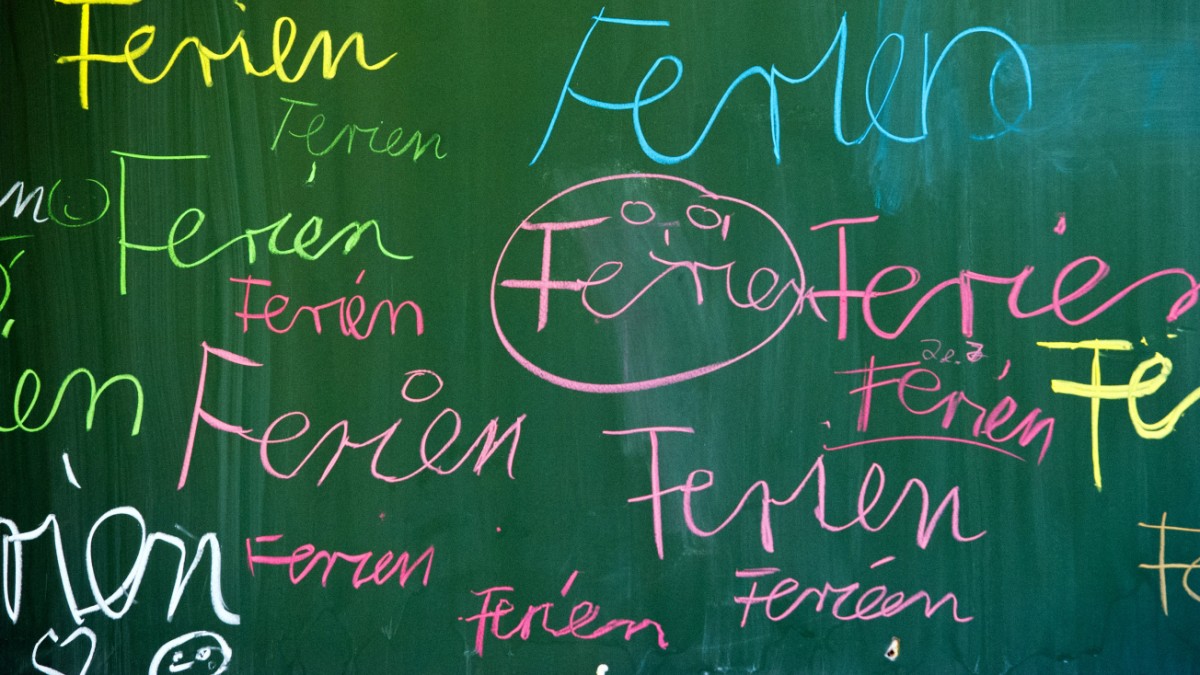 Ferien
Ferien
Ferien
Ferien
Ferien
Ferien
Ferien
Ferien
Ferien
en
Ferien
Ferien
rien
Ferien
Ferien
Ferien